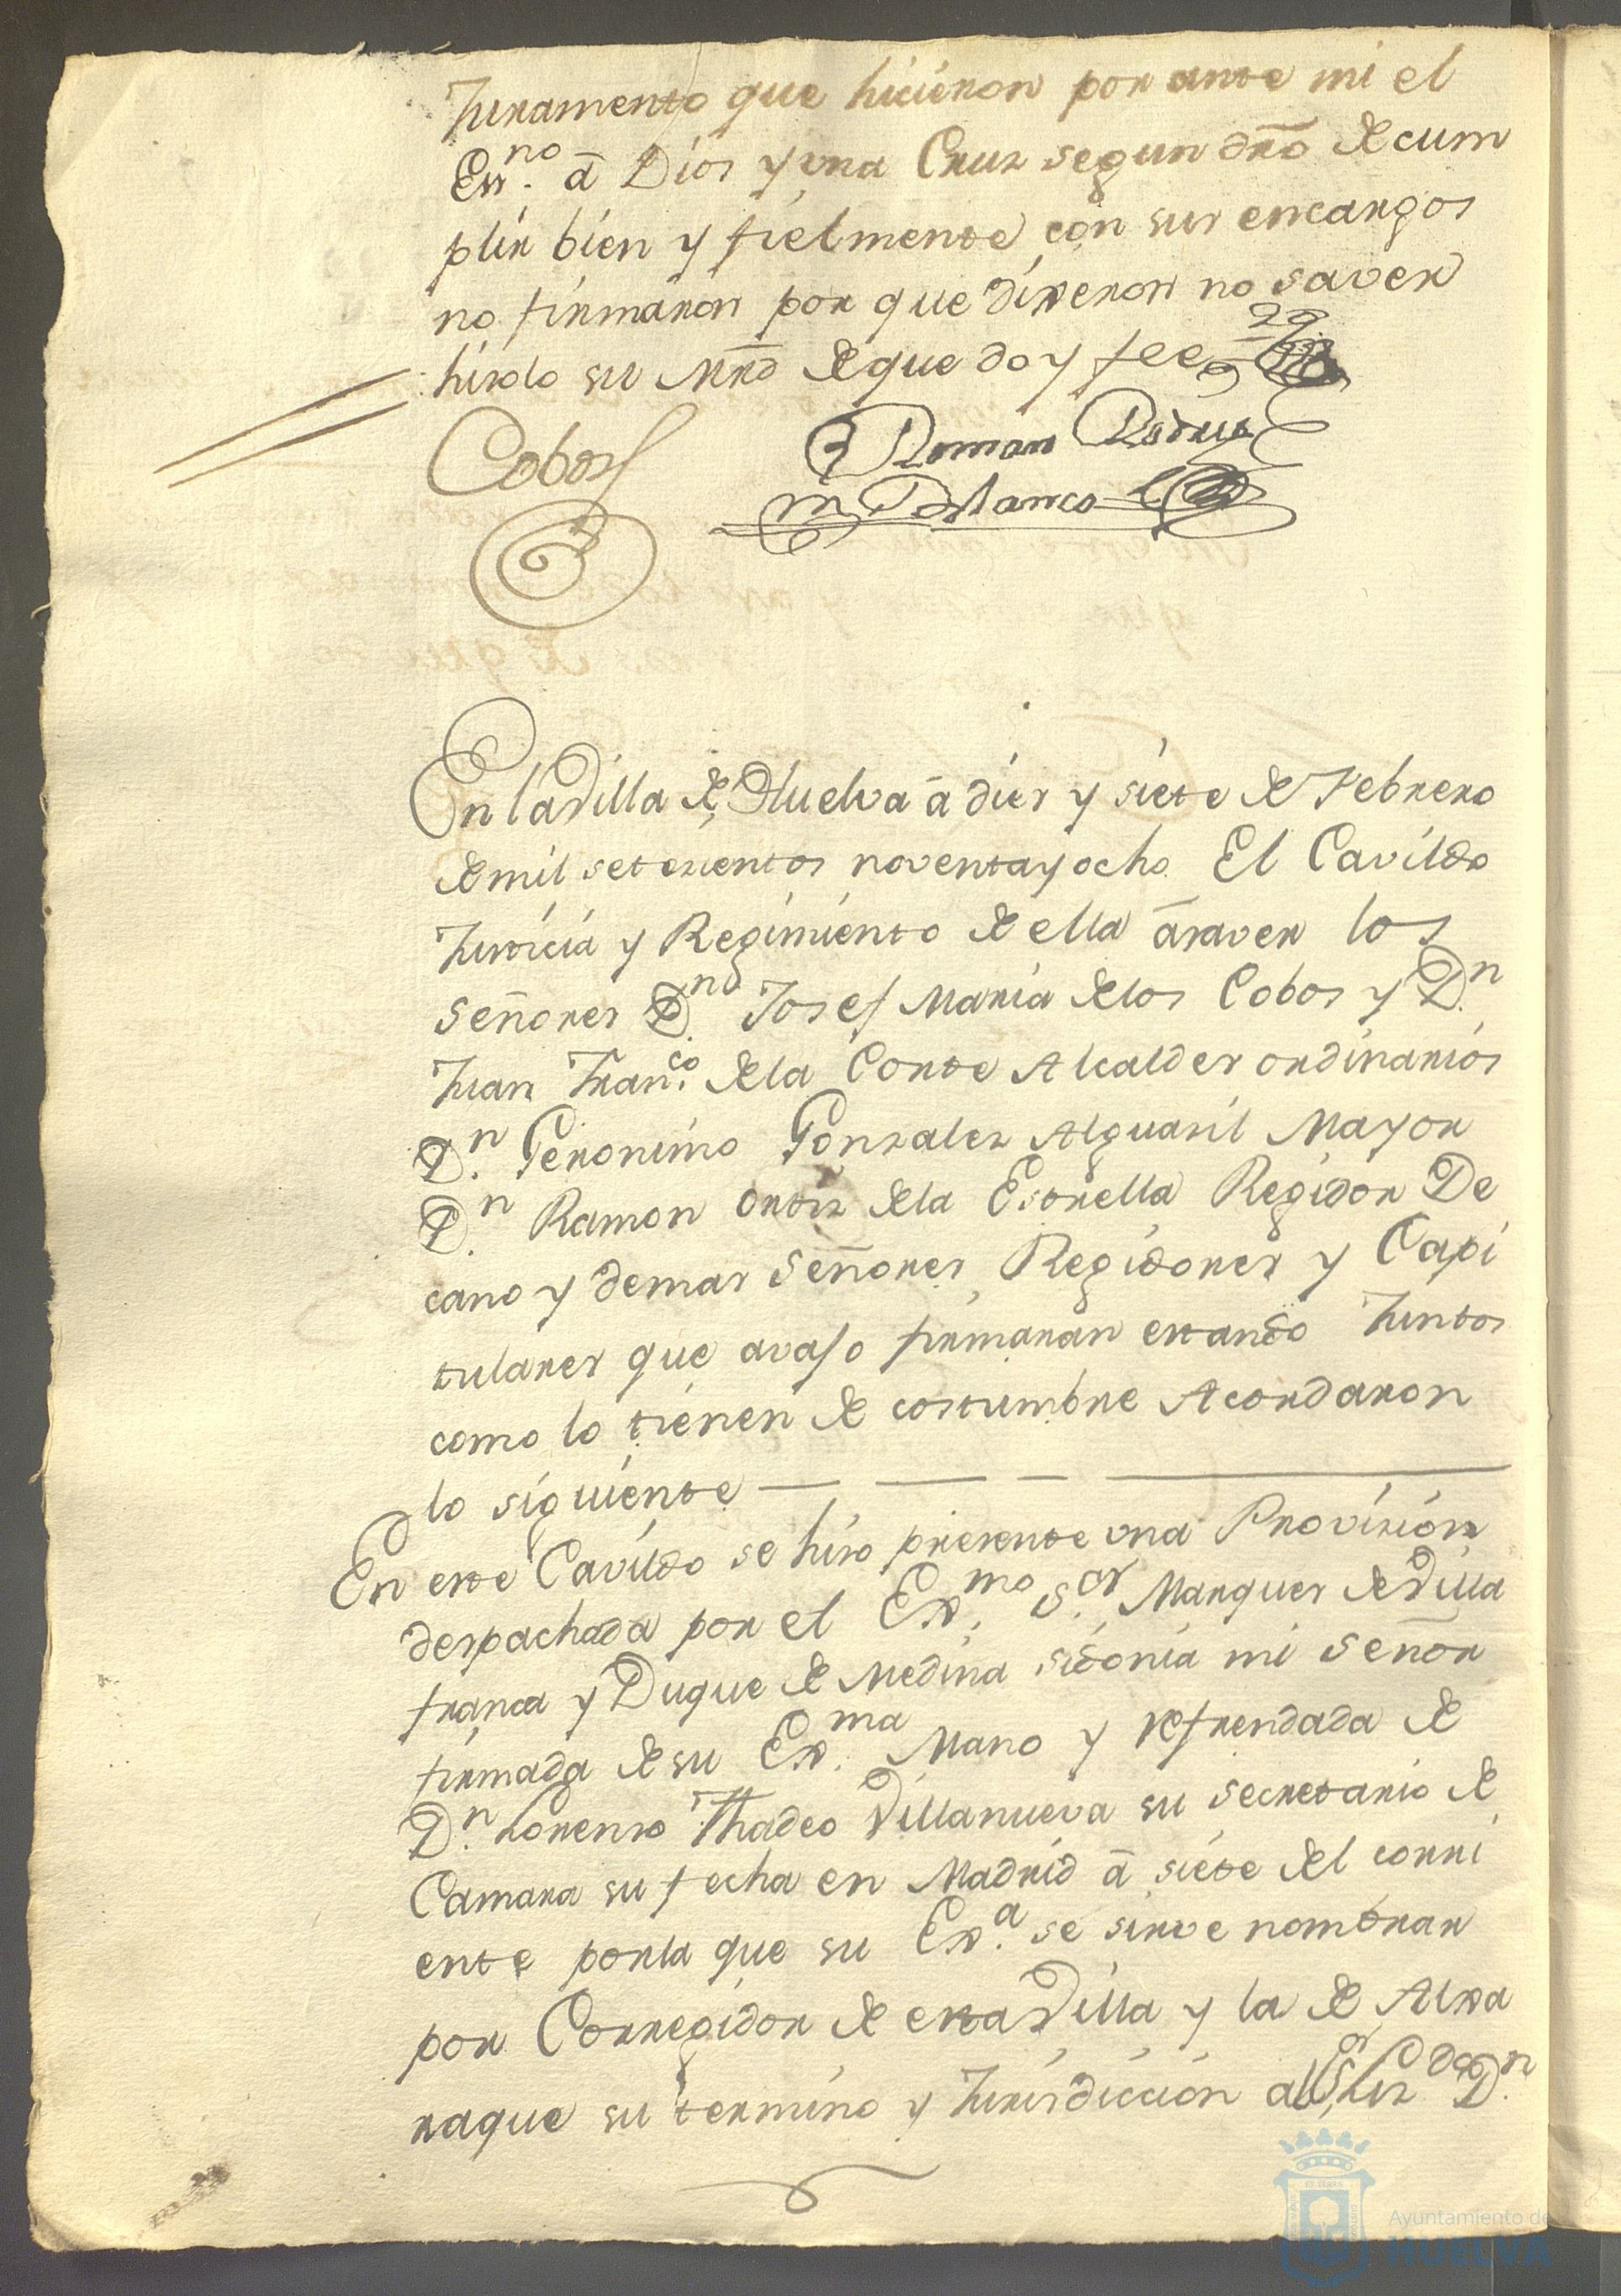 Juramento que hicieron por ante mi el
Essno. â Dios y una Cruz segun dro de cum
plir bien y fielmente con sus encargos
no firmaron por que dixeron no saver
hizolo su Mrd de que doy fee
Cobos
Roman Rodrig
m Polanco
En la Villa de Huelva â diez y siete de Febrero
de mil setecientos noventa y ocho El Cavildo
Justicia y Regimiento de ella â saver los
señores Dn. Josef Maria de los Cobos y Dn.
Juan Franco. de la Corte Alcaldes ordinarios
Dn. Geronimo Gonzalez Alguasil Mayor
Dn. Ramon Ortiz de la Estrella Regidor De
cano y demas señores Regidores y Capi
tulares que avajo firmaran estando Juntos
como lo tienen de costumbre Acordaron
lo siguiente
En este Cavildo se hizo presente una Provision
despachada por el Exmo. Sor. Marques de Villa
franca y Duque de Medina sidonia mi señor
firmada de su Exma. Mano y refrendada de
Dn. Lorenzo Thadeo Villanueva su secretario de
Camara su fecha en Madrid â siete del corri
ente por la que su Exa. se sirve nombrar
por Corregidor de esta Villa y la de Alxa
raque su termino y Jurisdiccion al Sor. Lizdo Dn.
Ayuntamiento de
HUELVA